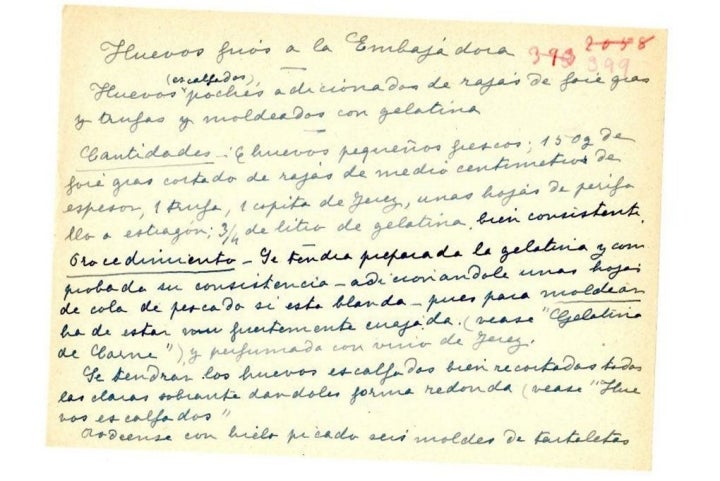 Huevos frios a la Embajádora 393 2058 399
(escalfados)
Huevos pochés adicionados de rajas de foie gras
y trufas y moldeados con gelatina
Cantidades - 6 huevos pequeños frescos; 150 g de
foie gras cortado de rajas de medio centimetro de
espesor, 1 trufa, 1 copita de Jerez, unas hojas de perifo
llo o estragón; 3/4 de litro de gelatina, bien consistente.
Procedimiento - Se tendra preparada la gelatina y com
probada su consistencia - adicionandole unas hojas
de cola de pescado si esta blanda - pues para moldear
ha de estar muy fuertemente cuajada. (vease "Gelatina
de Carne"), y perfumada con vino de Jerez.
Se tendran los huevos escalfados bien recortadas todas
las claras sobrante dandoles forma redonda (vease "Hue
vos escalfados"
Rodeense con hielo picado seis moldes de tartaletas